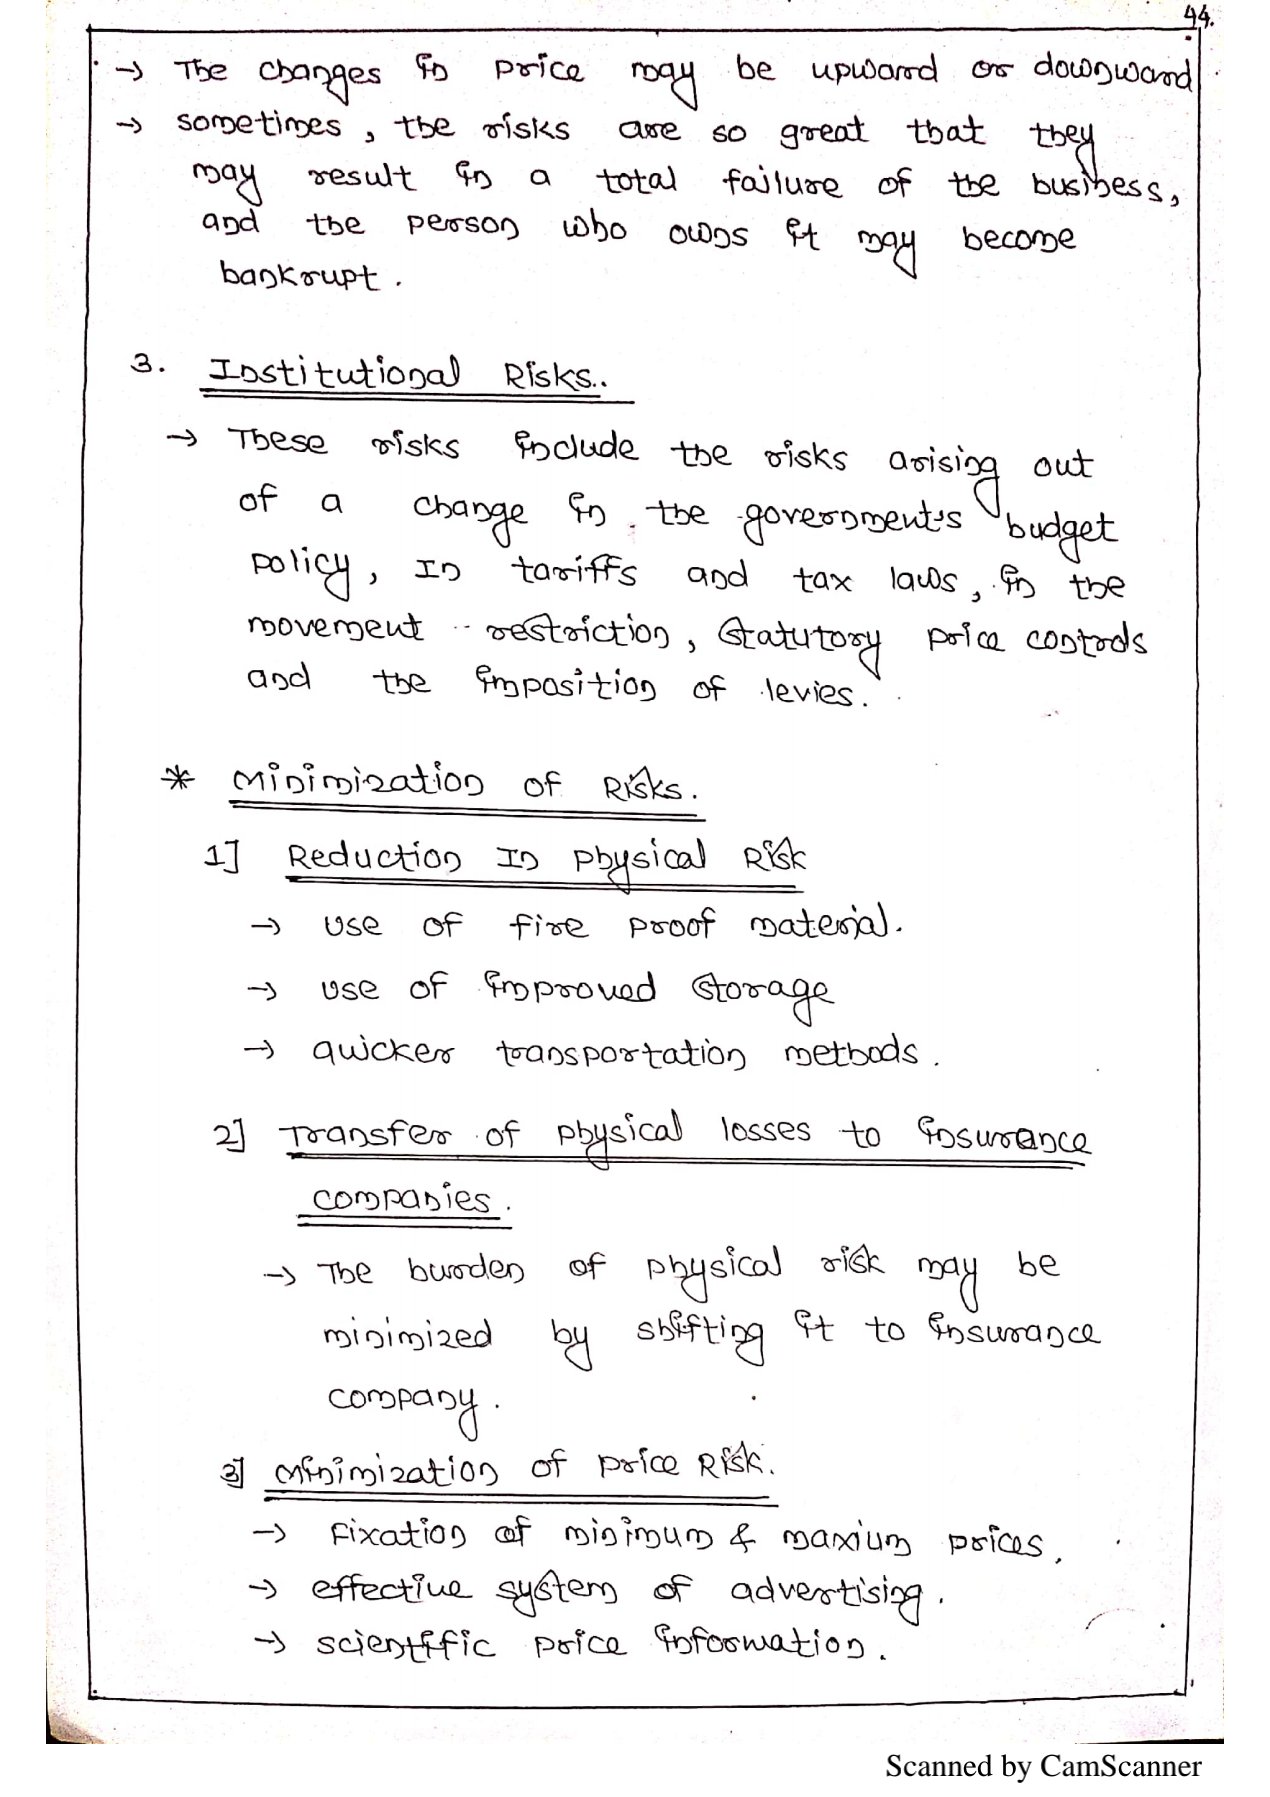 44.
→ The changes in price may be upward or downward
→ sometimes, the risks are so great that they
may result in a total failure of the business,
and the person who owns it may become
bankrupt.
3. Institutional Risks..
→ These risks include the risks arising out
of a change in the government's budget
policy, In tariffs and tax laws, in the
movement restriction, statutory price controls
and the imposition of levies.
* Minimization of Risks.
1] Reduction In physical Risk
→ use of fire proof material.
→ use of improved storage
→ quicker transportation methods.
2] Transfer of physical losses to insurance
companies.
→ The burden of physical risk may be
minimized by shifting it to insurance
company.
3] Minimization of price Risk.
→ Fixation of minimum & maxium prices.
→ effective system of advertising.
→ scientific price information.
Scanned by CamScanner